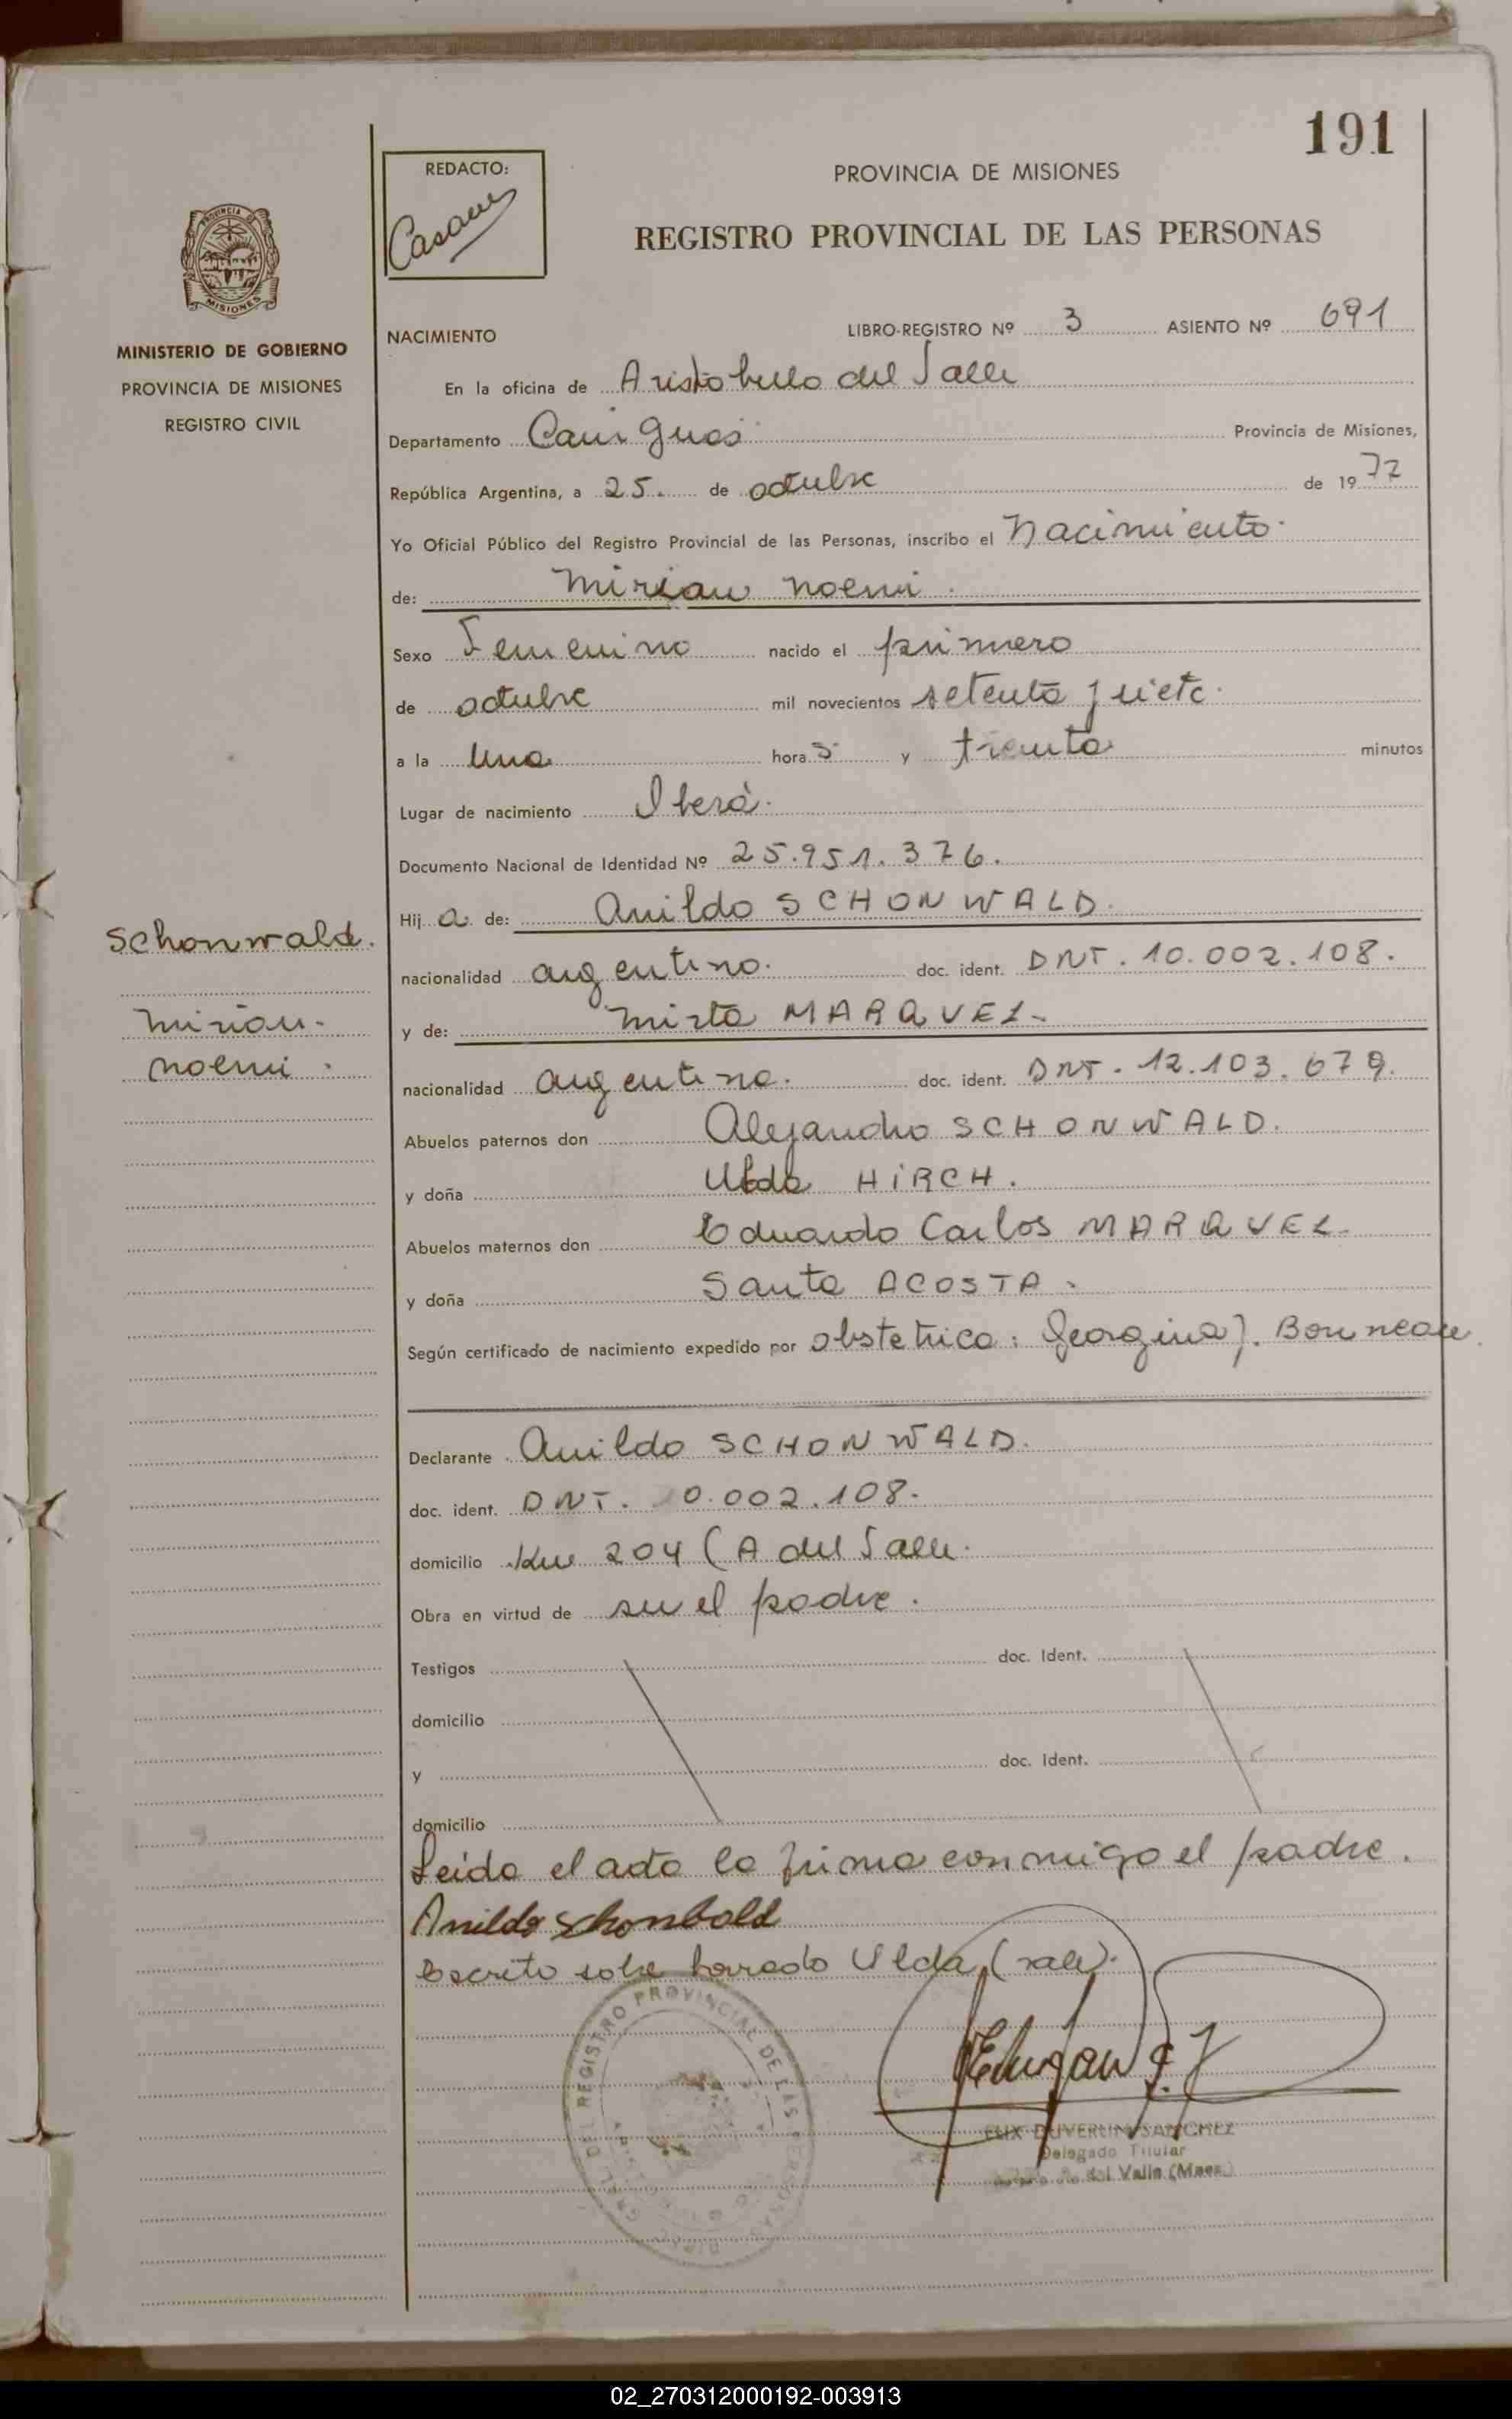 191
REDACTO:
PROVINCIA DE MISIONES
REGISTRO PROVINCIAL DE LAS PERSONAS
PROVINCIA D
MISIONES
MINISTERIO DE GOBIERNO
PROVINCIA DE MISIONES
REGISTRO CIVIL
NACIMIENTO
LIBRO-REGISTRO Nº 3 ASIENTO Nº 691
En la oficina de Aristobulo del Valle
Departamento Cainguas
Provincia de Misiones,
República Argentina, a 25 de octubre de 1977
Yo Oficial Público del Registro Provincial de las Personas, inscribo el Nacimiento
de: Mirian Noemi
Sexo Femenino nacido el primero
de octubre mil novecientos setenta y siete
a la una hora s y treinta minutos
Lugar de nacimiento Iberá
Documento Nacional de Identidad Nº 25.951.376.
Hij a de: Anildo SCHONWALD
nacionalidad argentino. doc. ident. DNT. 10.002.108.
y de: Mirta MARQVEZ
nacionalidad argentina. doc. ident. DNT. 12.103.679.
Abuelos paternos don Alejandro SCHONWALD.
y doña Ulda HIRCH.
Abuelos maternos don Eduardo Carlos MARQVEZ
y doña Santa ACOSTA
Según certificado de nacimiento expedido por obstetrica: Georgina J.
Declarante Anildo SCHONWALD.
doc. ident. DNT. 0.002.108.
domicilio Km 204 (A del Valle
Obra en virtud de ser el padre.
Testigos doc. Ident.
domicilio
y doc. Ident.
domicilio
Leida el acta la firma conmigo el padre.
Anildo Schonbold
Escrito sobre borrado Ulda (vale).
DEL REGISTRO PROVINCIAL DE LAS PERSONAS
SANCHEZ
Delegado Titular
del Valle (Mnes.)
Schonwald.
Mirian
Noemi
02_270312000192-003913